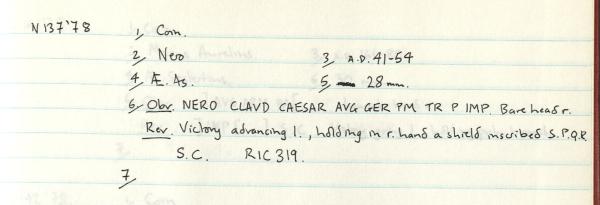 N137'78 1, Coin.
2, Nero 3, A.D. 41-54
4, Æ. As. 5, 28 mm.
6, Obv. NERO CLAVD CAESAR AVG GER PM TR P IMP. Bare head r.
Rev. Victory advancing l., holding in r. hand a shield inscribed S.P.Q.R
S.C. RIC 319.
7,